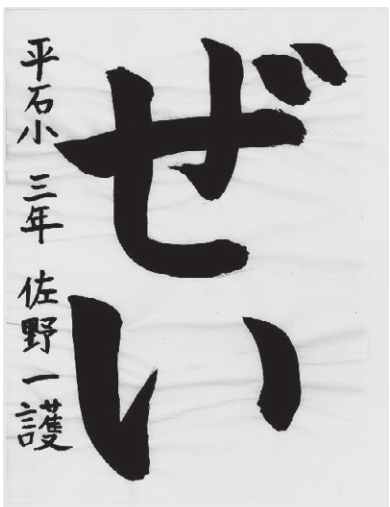 ぜい
平石小 三年 佐野一護